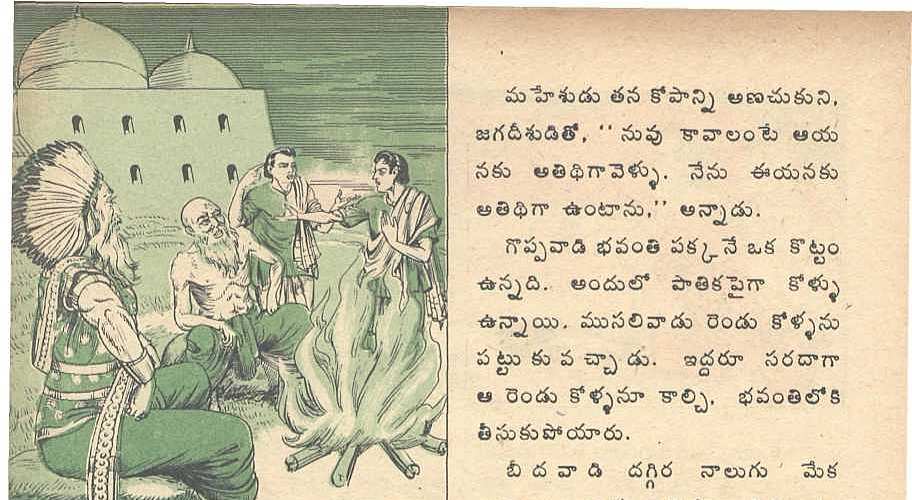 మహేశుడు తన కోపాన్ని అణచుకుని,
జగదీశుడితో, ‘‘ నువు కావాలంటే ఆయ
నకు అతిథిగా వెళ్ళు. నేను ఈయనకు
అతిథిగా ఉంటాను,’’ అన్నాడు.
గొప్పవాడి భవంతి పక్కనే ఒక కొట్టం
ఉన్నది. అందులో పాతికపైగా కోళ్ళు
ఉన్నాయి. ముసలివాడు రెండు కోళ్ళను
పట్టుకు వచ్చాడు. ఇద్దరూ సరదాగా
ఆ రెండు కోళ్ళనూ కాల్చి, భవంతిలోకి
తీసుకుపోయారు.
బీదవాడి దగ్గిర నాలుగు మేక